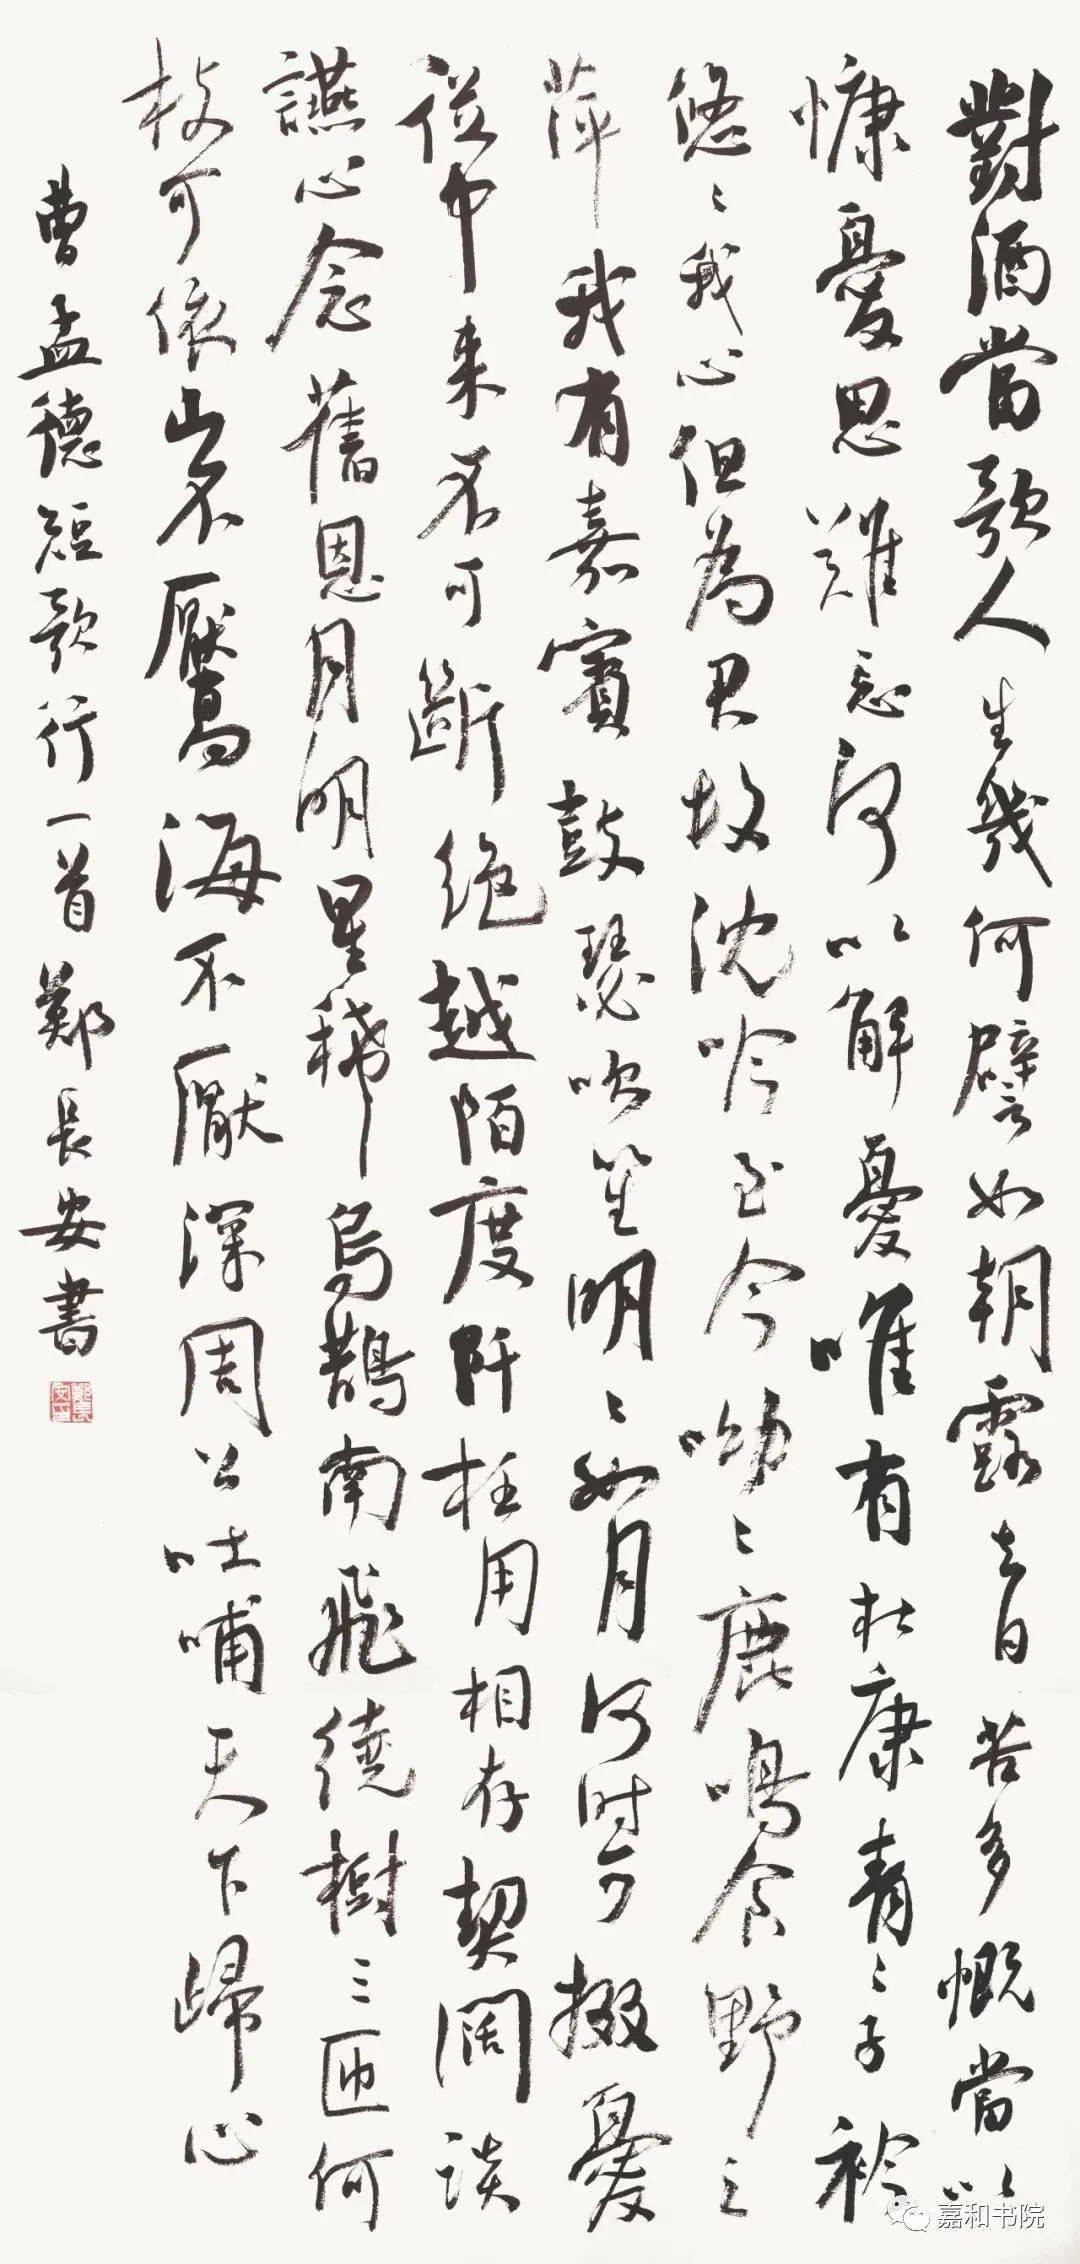 對酒當歌人生幾何譬如朝露去日苦多慨當以
慷憂思難忘何以解憂唯有杜康青〻子衿
悠〻我心但為君故沈吟至今呦〻鹿鳴食野之
萍我有嘉賓鼓瑟吹笙明〻如月何時可掇憂
從中来不可斷絕越陌度阡枉用相存契闊談
讌心念舊恩月明星稀烏鵲南飛繞樹三匝何
枝可依山不厭高海不厭深周公吐哺天下歸心
曹孟德短歌行一首 鄭長安書
鄭長安印
嘉和书院